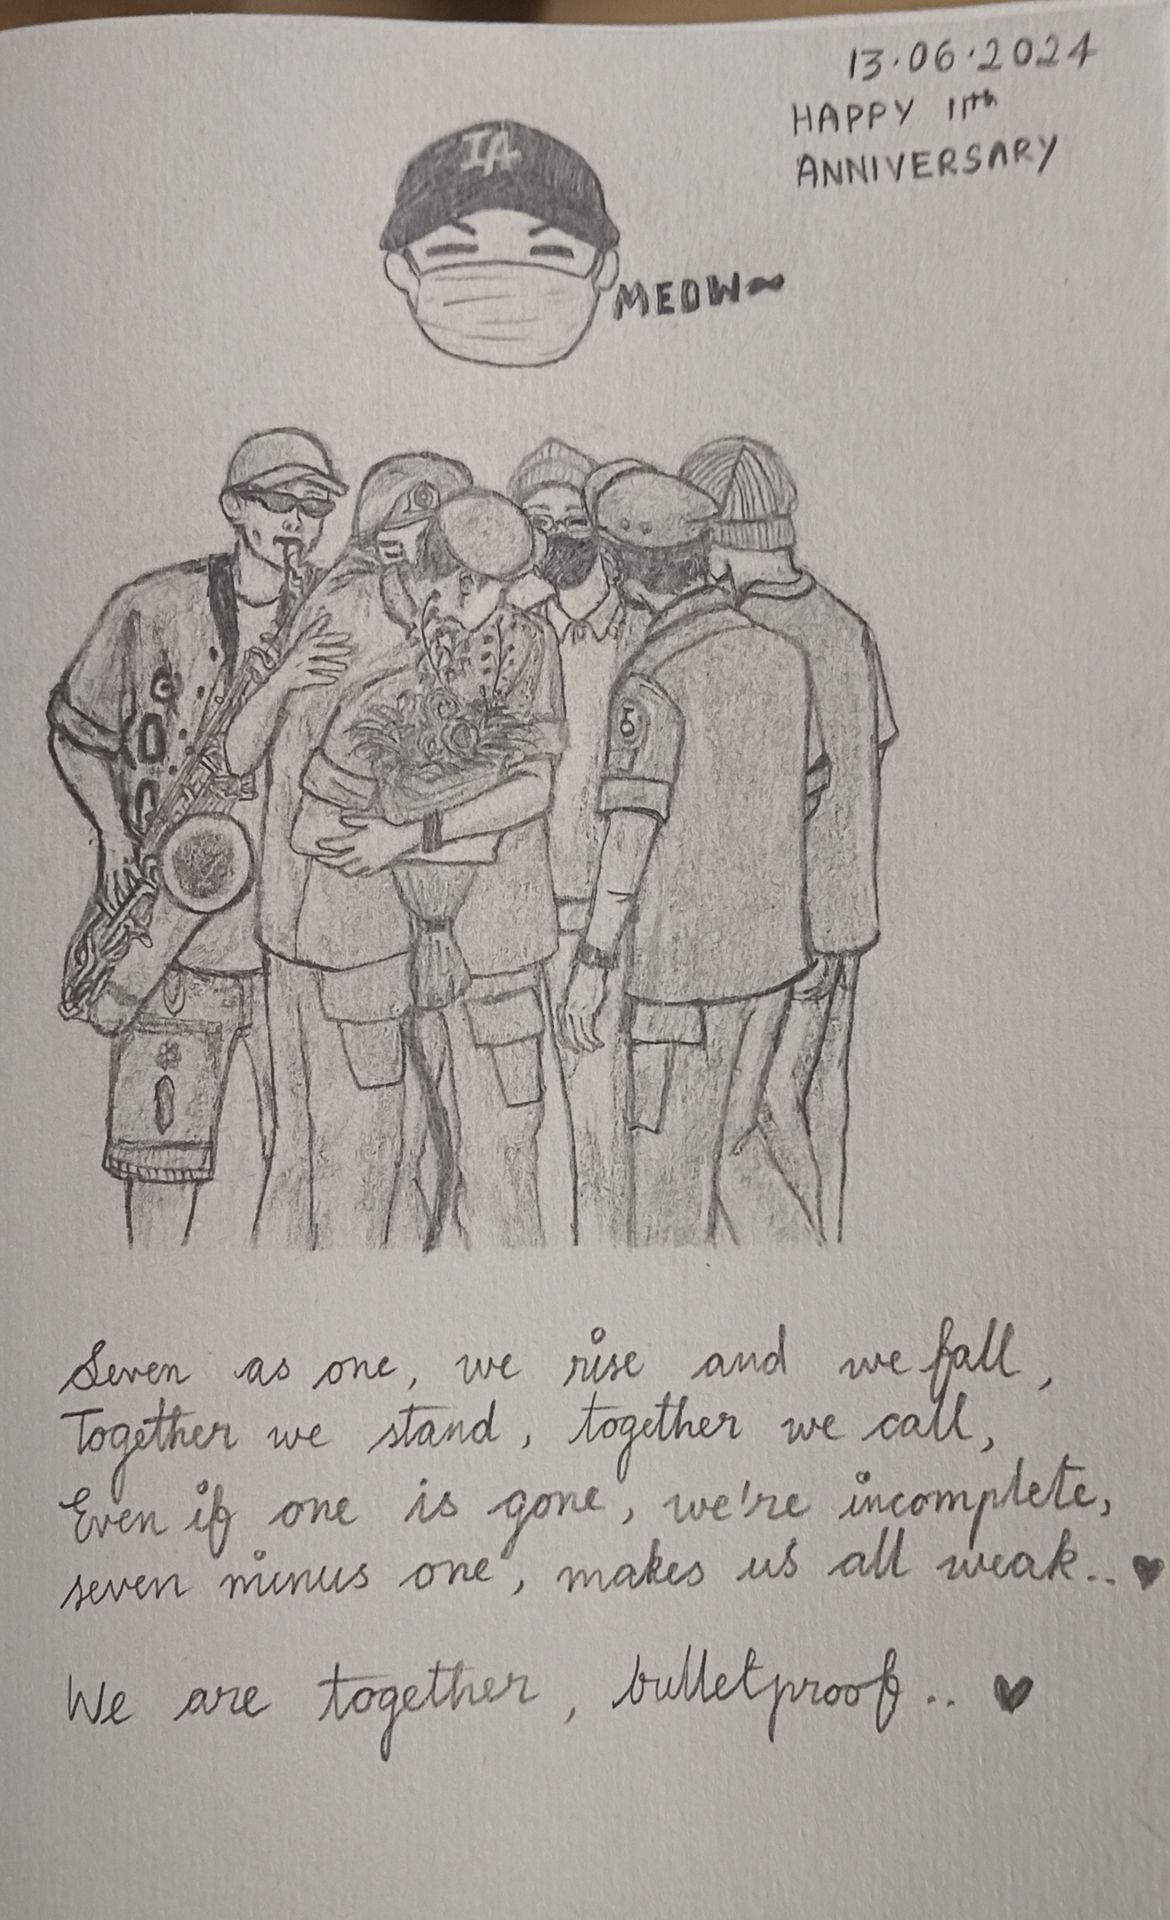 13.06.2024
HAPPY 11th
ANNIVERSARY
IA
MEOW~
Seven as one, we rise and we fall,
Together we stand, together we call,
Even if one is gone, we're incomplete,
seven minus one, makes us all weak.. ♥
We are together, bulletproof.. ♥